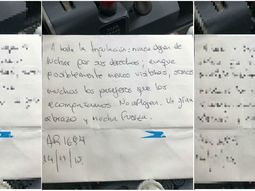 A toda la tripulación: nunca dejen de
luchar por sus derechos; aunque
posiblemente menos visibles, somos
muchos los pasajeros que los
comprendemos. No aflojen. Un gran
abrazo y mucha fuerza.
AR1684
14/11/